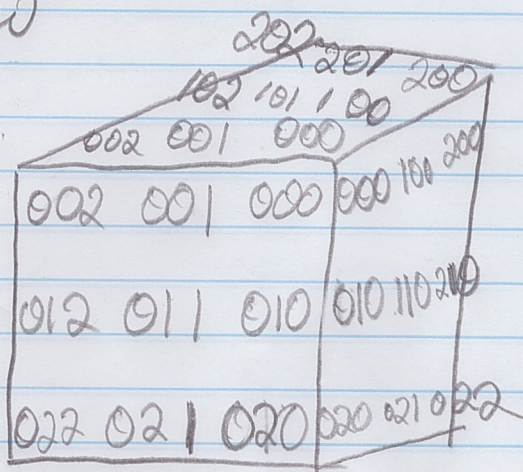 202 201 200
102 101 100
002 001 000
002 001 000 000 100 200
012 011 010 010 110 210
022 021 020 020 021 022